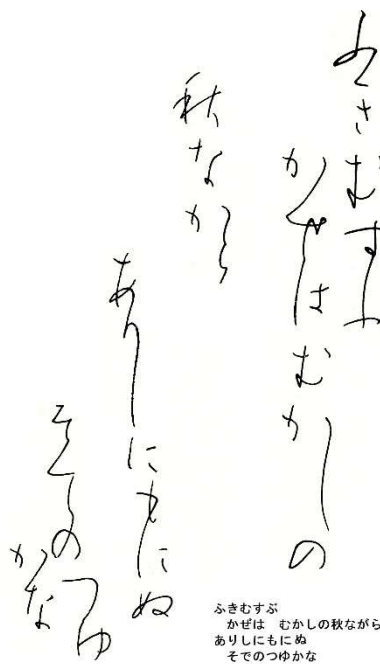 ふきむすふ
かせはむかしの
秋なから
ありしにもにぬ
そてのつゆ
かな
ふきむすぶ
かぜは むかしの秋ながら
ありしにもにぬ
そでのつゆかな